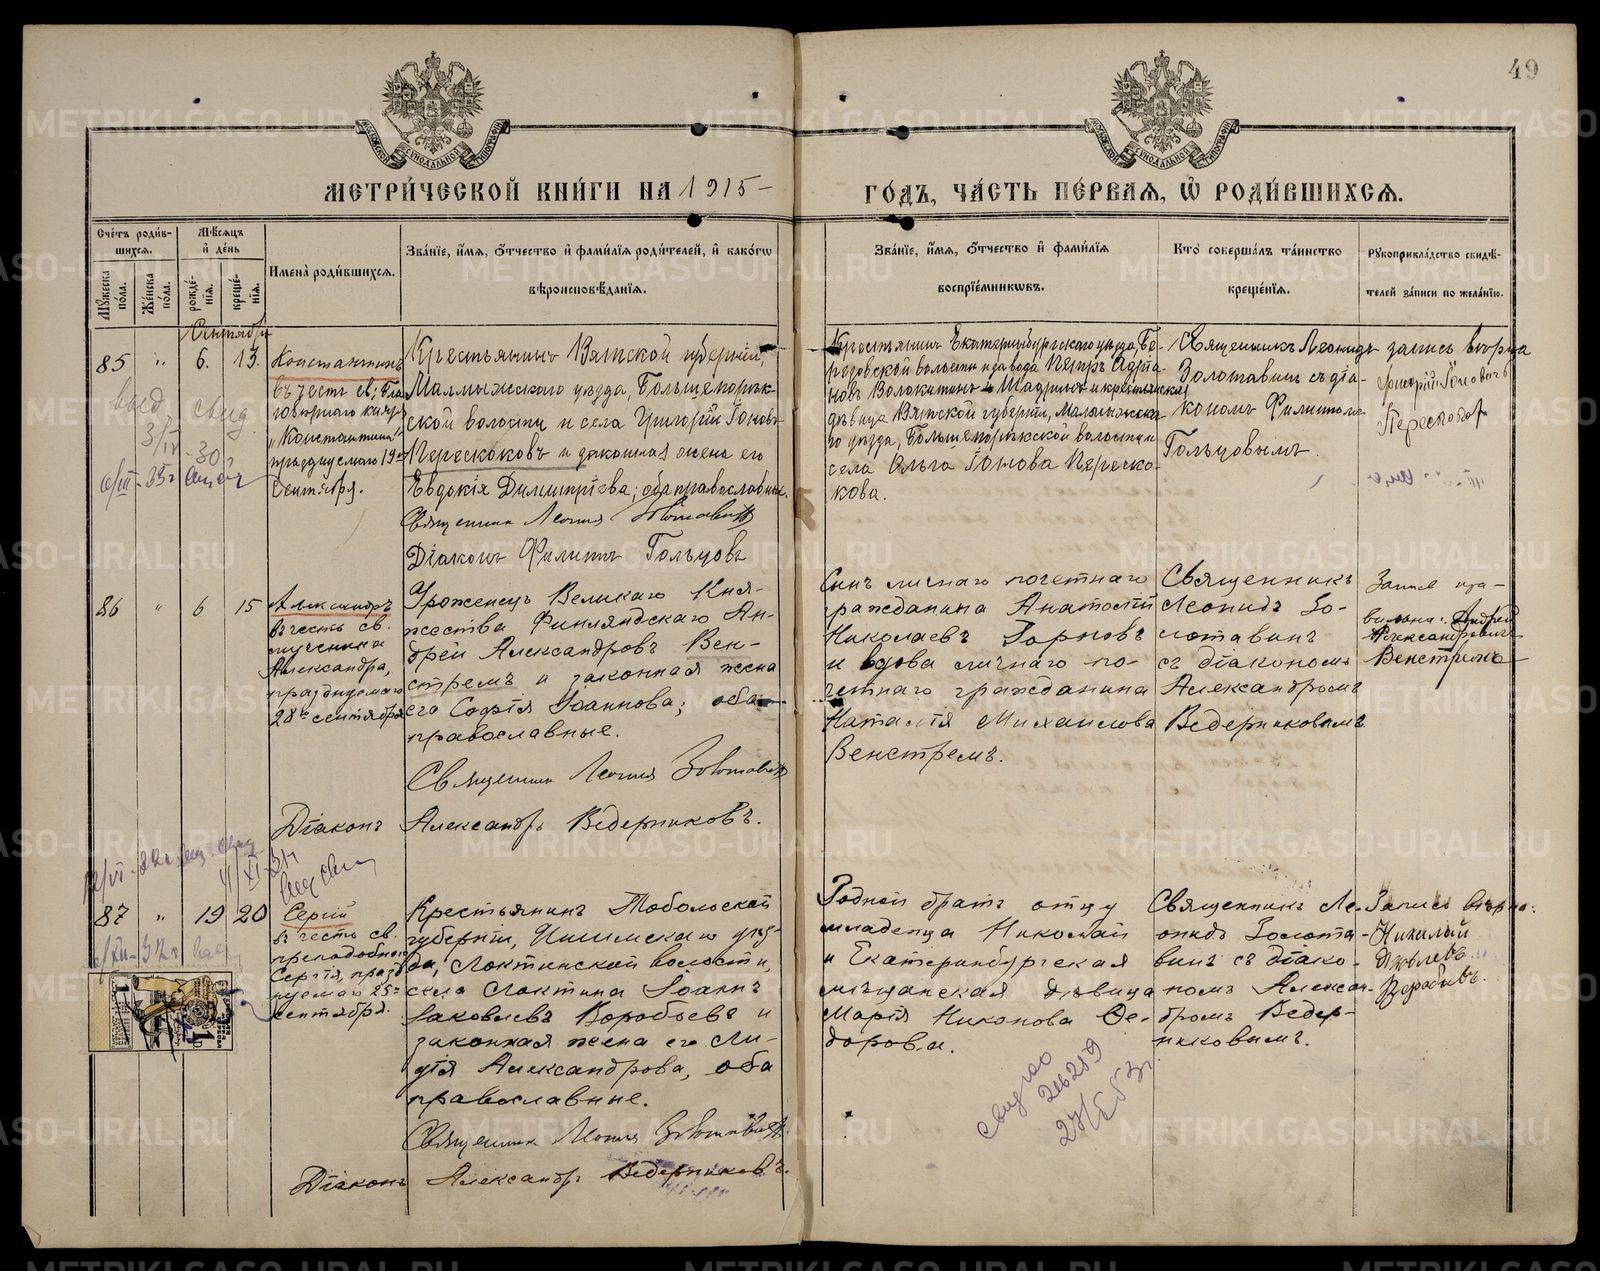 49
МЕТРИ́ЧЕСКОЙ КНИ́ГИ НА 1915 –
ГО́ДЪ, ЧА́СТЬ ПЕ́РВАЯ, Ѡ҆ РОДИ́ВШИХСЯ.
Сче́тъ роди́в-
шихся.
Мѣ́сяцъ
и҆ де́нь
Му́жеска по́ла.
Же́нска по́ла.
рожде́-
нїя.
креще́-
нїя.
Имена̀ роди́вшихся.
Зва́нїе, и҆́мя, ѻ҆́тчество и҆ фами́лїя роди́телей, и҆ како́гѡ
вѣроисповѣ́данїя.
Зва́нїе, и҆́мя, ѻ҆́тчество и҆ фами́лїя
воспрїе́мникѡвъ.
Кто̀ соверша́лъ та́инство
креще́нїя.
Рꙋкоприкла́дство свидѣ́-
телей за́писи по жела́нїю.
Сентябрь
85 " 6. 13.
Константинъ
въ честь св; Бла
говѣрнаго князя
"Константина"
празднуемаго 19го
Сентября.
Крестьянинъ Вятской губерніи,
Малмыжскаго уѣзда, Большепорък-
ской волости и села Григорій Іоновъ
Перескоковъ и законная жена его
Евдокія Димитріева; оба православные.
Священникъ Леонидъ Золотавинъ
Діаконъ Филиппъ Гольцовъ
Крестьянинъ Екатеринбургскаго уѣзда, Бе-
резовской волости и завода Петръ Адріа-
новъ Волокитинъ и крестьянская
дѣвица Вятской губерніи, Малмыжска-
го уѣзда, Большепоръкской волости и
села Ольга Іонова Переско-
кова.
Священникъ Леонидъ
Золотавинъ съ діа-
кономъ Филиппомъ
Гольцовымъ.
запись вѣрна
Григорій Іоновичъ
Перескоковъ
86 " 6 15
Александръ
въ честь св.
мученика
Александра,
празднуемаго
28го сентября
Уроженецъ Великаго Кня-
жества Финляндскаго Ан-
дрей Александровъ Вен-
стремъ и законная жена
его Софія Іоаннова; оба
православные.
Священникъ Леонидъ Золотавинъ
Діаконъ Александръ Ведерниковъ.
Сынъ личнаго почетнаго
гражданина Анатолій
Николаевъ Горновъ
и вдова личнаго по-
четнаго гражданина
Наталія Михаилова
Венстремъ.
Священникъ
Леонидъ Зо-
лотавинъ
съ діакономъ
Александромъ
Ведерниковымъ
Запись пра-
вильна. Андрей
Александровичъ
Венстремъ
87 " 19 20
Сергій
въ честь св.
преподобнаго
Сергія, празд
нуемаго 25го
сентября.
Крестьянинъ Тобольской
губерніи, Ишимскаго уѣз-
да, Локтинской волости,
села Локтина Іоаннъ
Іаковлевъ Воробьевъ и
законная жена его Ли-
дія Александрова, оба
православные.
Священникъ Леонидъ Золотавинъ
Діаконъ Александръ Ведерниковъ.
Родной братъ отцу
младенца Николай
и Екатеринбургская
мѣщанская дѣвица
Марія Никонова Ѳе-
дорова.
Священникъ Ле-
онидъ Золота-
винъ съ діако-
номъ Алексан-
дромъ Ведер-
никовымъ.
Запись вѣрна:
Николай
Яковлевъ
Воробьевъ.
216259
METRIKI.GASO-URAL.RU